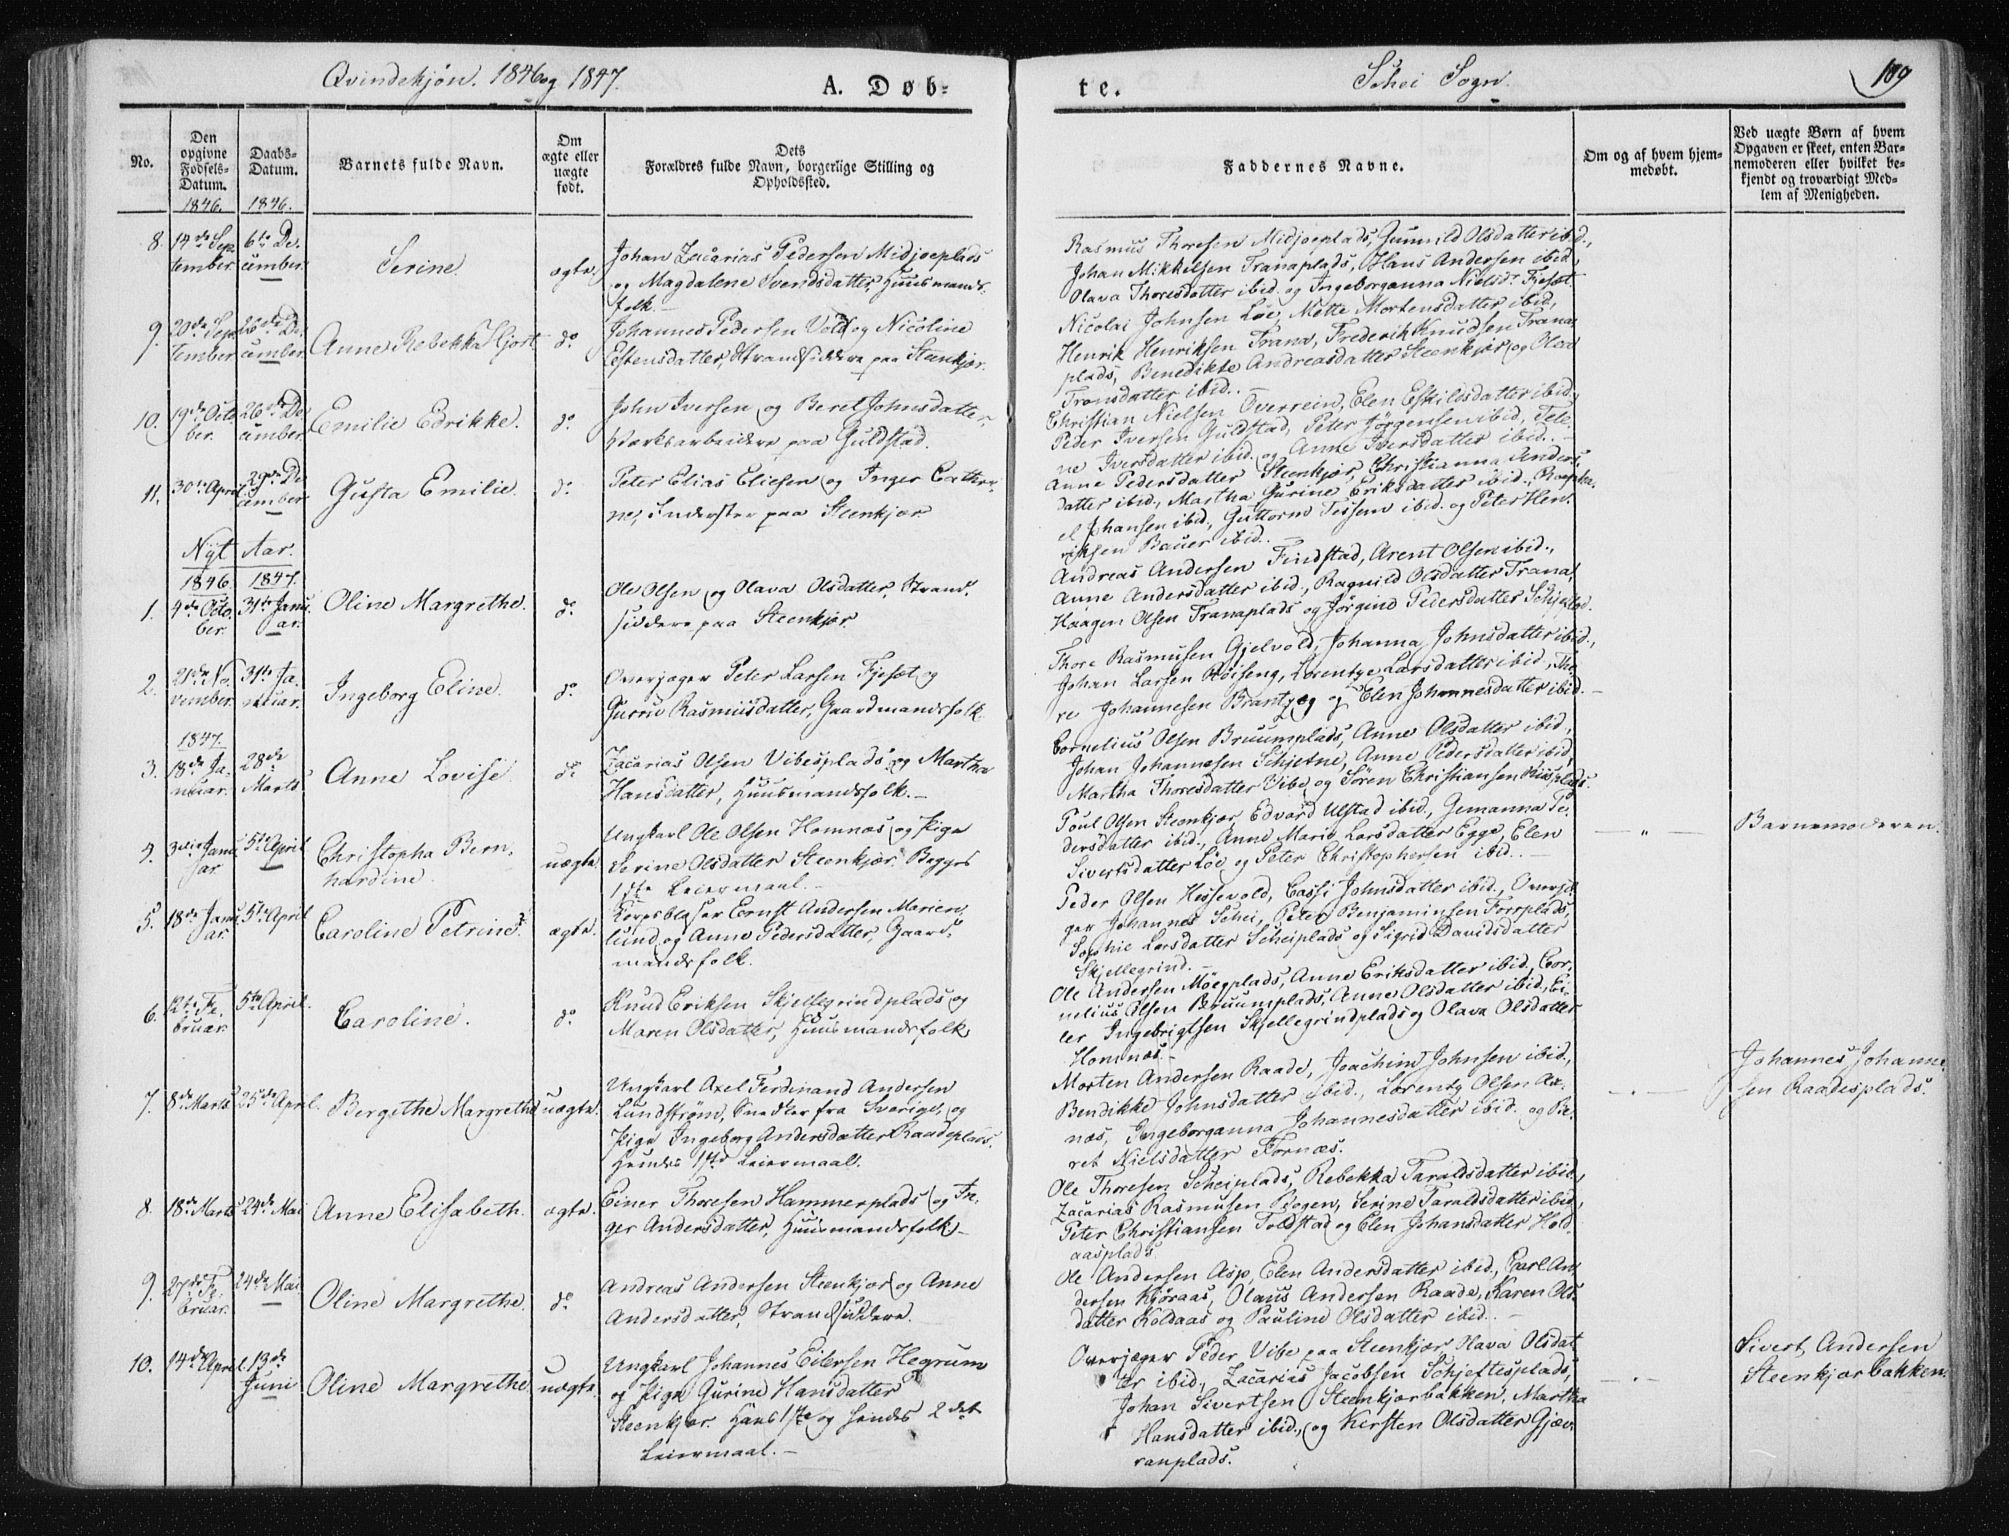 Qvindekjøn. 1846 og 1847.
A. Døb-
te.
Schei Sogn.
109
No.
Den opgivne Fødsels-Datum.
1846.
Daabs-Datum.
1846.
Barnets fulde Navn.
Om ægte eller uægte født.
Dets
Forældres fulde Navn, borgerlige Stilling og
Opholdssted.
Faddernes Navne.
Om og af hvem hjem-
medøbt.
Ved uægte Børn af hvem
Opgaven er skeet, enten Bar-
nemoderen eller hvilket be-
kjendt og troværdigt Med-
lem af Menigheden.
8. 14de Sep- 6te De-
tember. cember. Serine. ægte.
Johan Zacarias Pedersen Midjoeplads
og Magdalene Svendsdatter, Huusmands-
folk.
Rasmus Thoresen Midjoeplads, Gunnild Olsdatter ibid.,
Johan Mikkelsen Tranaplads, Hans Andersen ibid.,
Olava Thoresdatter ibid. og Ingeborganna Nielsdr. Fjesæt.
9. 20de Sep- 26de De-
tember. cember. Anne Rebekka Hjort. do
Johannes Pedersen Vold og Nicoline
Estensdatter, Strandsiddere paa Steenkjær.
Nicolai Johnsen Løe, Mette Mortensdatter ibid.,
Henrik Henriksen Trana, Frederik Knudsen Trana-
plads, Benedikte Andreasdatter Steenkjær og Olava
Tronsdatter ibid.
10. 19de Octo- 26de De-
ber. cember. Emilie Edrikke. do
John Iversen og Beret Johnsdatter,
Værksarbeidere paa Guldstad.
Christian Nielsen Overrein, Elen Eskildsdatter ibid.,
Peder Iversen Guldstad, Peter Jørgensen ibid., Tele-
ne Iversdatter ibid. og Anne Iversdatter ibid.
11. 30te April. 29de De-
cember. Gusta Emilie. do
Peter Elias Eliesen og Inger Cathri-
ne, Inderster paa Steenkjær
Anne Pedersdatter Steenkjær, Christianna Anders-
datter ibid., Martha Gurine Eriksdatter ibid., Raspha-
el Johansen ibid., Guttorm Tessem ibid. og Peter Hen-
riksen Bauer ibid.
Nyt Aar.
1846 1847.
1. 4de Octo- 31te Janu-
ber. ar. Oline Margrethe. do
Ole Olsen og Olava Olsdatter, Strand-
siddere paa Steenkjær
Andreas Andersen Findstad, Arent Olsen ibid.,
Anne Andersdatter ibid., Ragnild Olsdatter Trana,
Haagen Olsen Tranaplads og Jørgine Pedersdatter
2. 21de No- 31te Ja-
vember. nuar. Ingeborg Eline. do
Overjæger Peter Larsen Fjesæt og
Gurru Rasmusdatter, Gaardmandsfolk.
Thore Rasmusen Gjelvold, Johanna Johnsdatter ibid.,
Johan Larsen Høiseng, Lorentze Larsdatter ibid., Tho-
re Johannesen Brantzeg og Elen Johannesdatter ibid.
1847.
3. 18de Ja- 28de
nuar. Marts Anne Lovise. do
Zacarias Olsen Vibesplads og Martha
Hansdatter, Huusmandsfolk.
Cornelius Olsen Bruumplads, Anne Olsdatter ibid.,
Johan Johannesen Schjetne, Anne Pedersdatter ibid.,
Martha Thoresdatter Vibe og Sören Christiansen Vibsplads.
4. 3die Janu- 5te April
ar. Christopha Bern-
hardine. uægte.
Ungkarl Ole Olsen Homnæs og Pige
Serine Olsdatter Steenkjær. Begges
1ste Leiermaal.
Poul Olsen Steenkjær, Edvard Ulstad ibid., Gemanna Pe-
dersdatter ibid., Anne Marie Larsdatter Egge, Elen
Sivertsdatter Løe og Peter Christophersen ibid.
"
Barnemoderen.
5. 18de Janu- 5te April
ar. Caroline Petrine. ægte.
Korpsblæser Ernst Andersen Marien-
lund og Anne Pedersdatter, Gaard-
mandsfolk.
Peder Olsen Hessevold, Cassi Johnsdatter ibid., Overjæ-
ger Johannes Schei, Peter Benjaminsen Forrplads,
Sophie Larsdatter Scheiplads og Sigrid Davidsdatter
Skjellegrind.
6. 12te Fe- 5te April.
bruar. Caroline. do
Knud Eriksen Skjellegrindplads og
Maren Olsdatter, Huusmandsfolk
Ole Andersen Møegplads, Anne Eriksdatter ibid., Cor-
nelius Olsen Bruumplads, Anne Olsdatter ibid., Ei-
ler Ingebrigtsen Skjellegrindplads og Olava Olsdatter
Homnæs.
7. 8de Marts 25de April. Bergethe Margrethe uægte.
Ungkarl Axel Ferdinand Andersen
Lundstrøm, Snedker fra Sverige, og
Pige Ingeborg Andersdatter Raadeplads.
Hendes 1ste Leiermaal.
Morten Andersen Raade, Joachim Johnsen ibid.,
Bendikke Johnsdatter ibid., Lorentz Olsen Ax-
næs, Ingeborganna Johannesdatter ibid. og Be-
ret Nielsdatter Fornæs.
Johannes Johanne-
sen Raadesplads.
8. 18de Marts 24de Mai Anne Elisabeth. ægte.
Einer Thoresen Hammerplads og In-
ger Andersdatter, Huusmandsfolk
Ole Thoresen Scheiplads, Rebekka Taraldsdatter ibid.,
Zacarias Rasmusen Bogen, Serine Taraldsdatter ibid.,
Peter Christiansen Toldstad og Elen Johansdatter Hold-
aasplads.
9. 27de Fe- 24de Mai
bruar. Oline Margrethe. do
Andreas Andersen Steenkjær og Anne
Andersdatter, Strandsiddere.
Ole Andersen Asp, Elen Andersdatter ibid., Carl An-
dersen Kjøraas, Olaus Andersen Raade, Karen Ols-
datter Koldaas og Pauline Olsdatter ibid.
10. 14de April. 13de
Juni Oline Margrethe uægte.
Ungkarl Johannes Eilersen Hegrum
og Pige Gurine Hansdatter
Steenkjær. Hans 1ste og hendes 2det
Leiermaal.
Overjæger Peder Vibe paa Steenkjær, Olava Olsdat-
ter ibid., Zacarias Jacobsen Schjeftesplads,
Johan Sivertsen Steenkjærbakken, Martha
Hansdatter ibid., og Kirsten Olsdatter Gjæv-
ranplads.
Sivert Andersen
Steenkjærbakken.